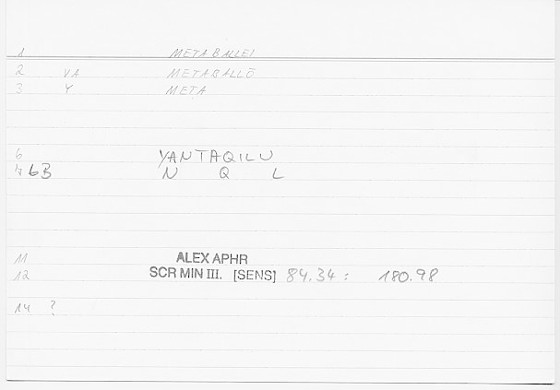 1 METABALLEI
2 VA METABALLŌ
3 Y META
6 YANTAQILU
6B N Q L
11 ALEX APHR
12 SCR MIN III. [SENS] 84.34 : 180.98
14 ?